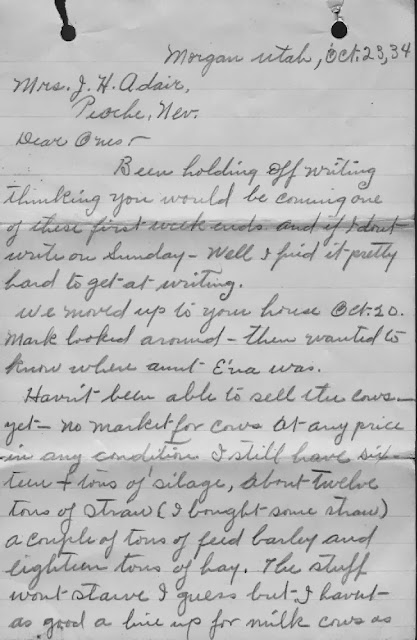 Morgan Utah, Oct. 23, 34
Mrs. J. H. Adair,
Pioche, Nev.
Dear Ones -
Been holding off writing
thinking you would be coming one
of these first week ends and if I dont
write on Sunday - Well I find it pretty
hard to get at writing.
We moved up to your house Oct. 20.
Mark looked around - then wanted to
know where aunt Ena was.
Havn't been able to sell the cows
yet - no market for cows at any price
in any condition. I still have six-
teen + tons of silage, about twelve
tons of straw (I bought some straw)
a couple of tons of feed barley and
eighteen tons of hay. The stuff
wont starve I guess but I havnt
as good a line up for milk cows as